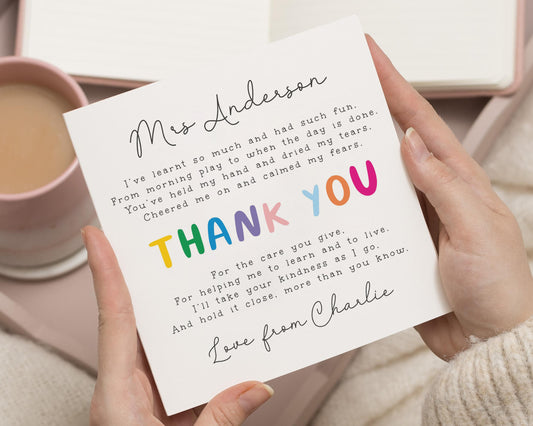 Mrs Anderson
I've learnt so much and had such fun.
From morning play to when the day is done.
You've held my hand and dried my tears.
Cheered me on and calmed my fears.
THANK YOU
For the care you give.
For helping me to learn and to live.
I'll take your kindness as I go.
And hold it close, more than you know.
Love from Charlie